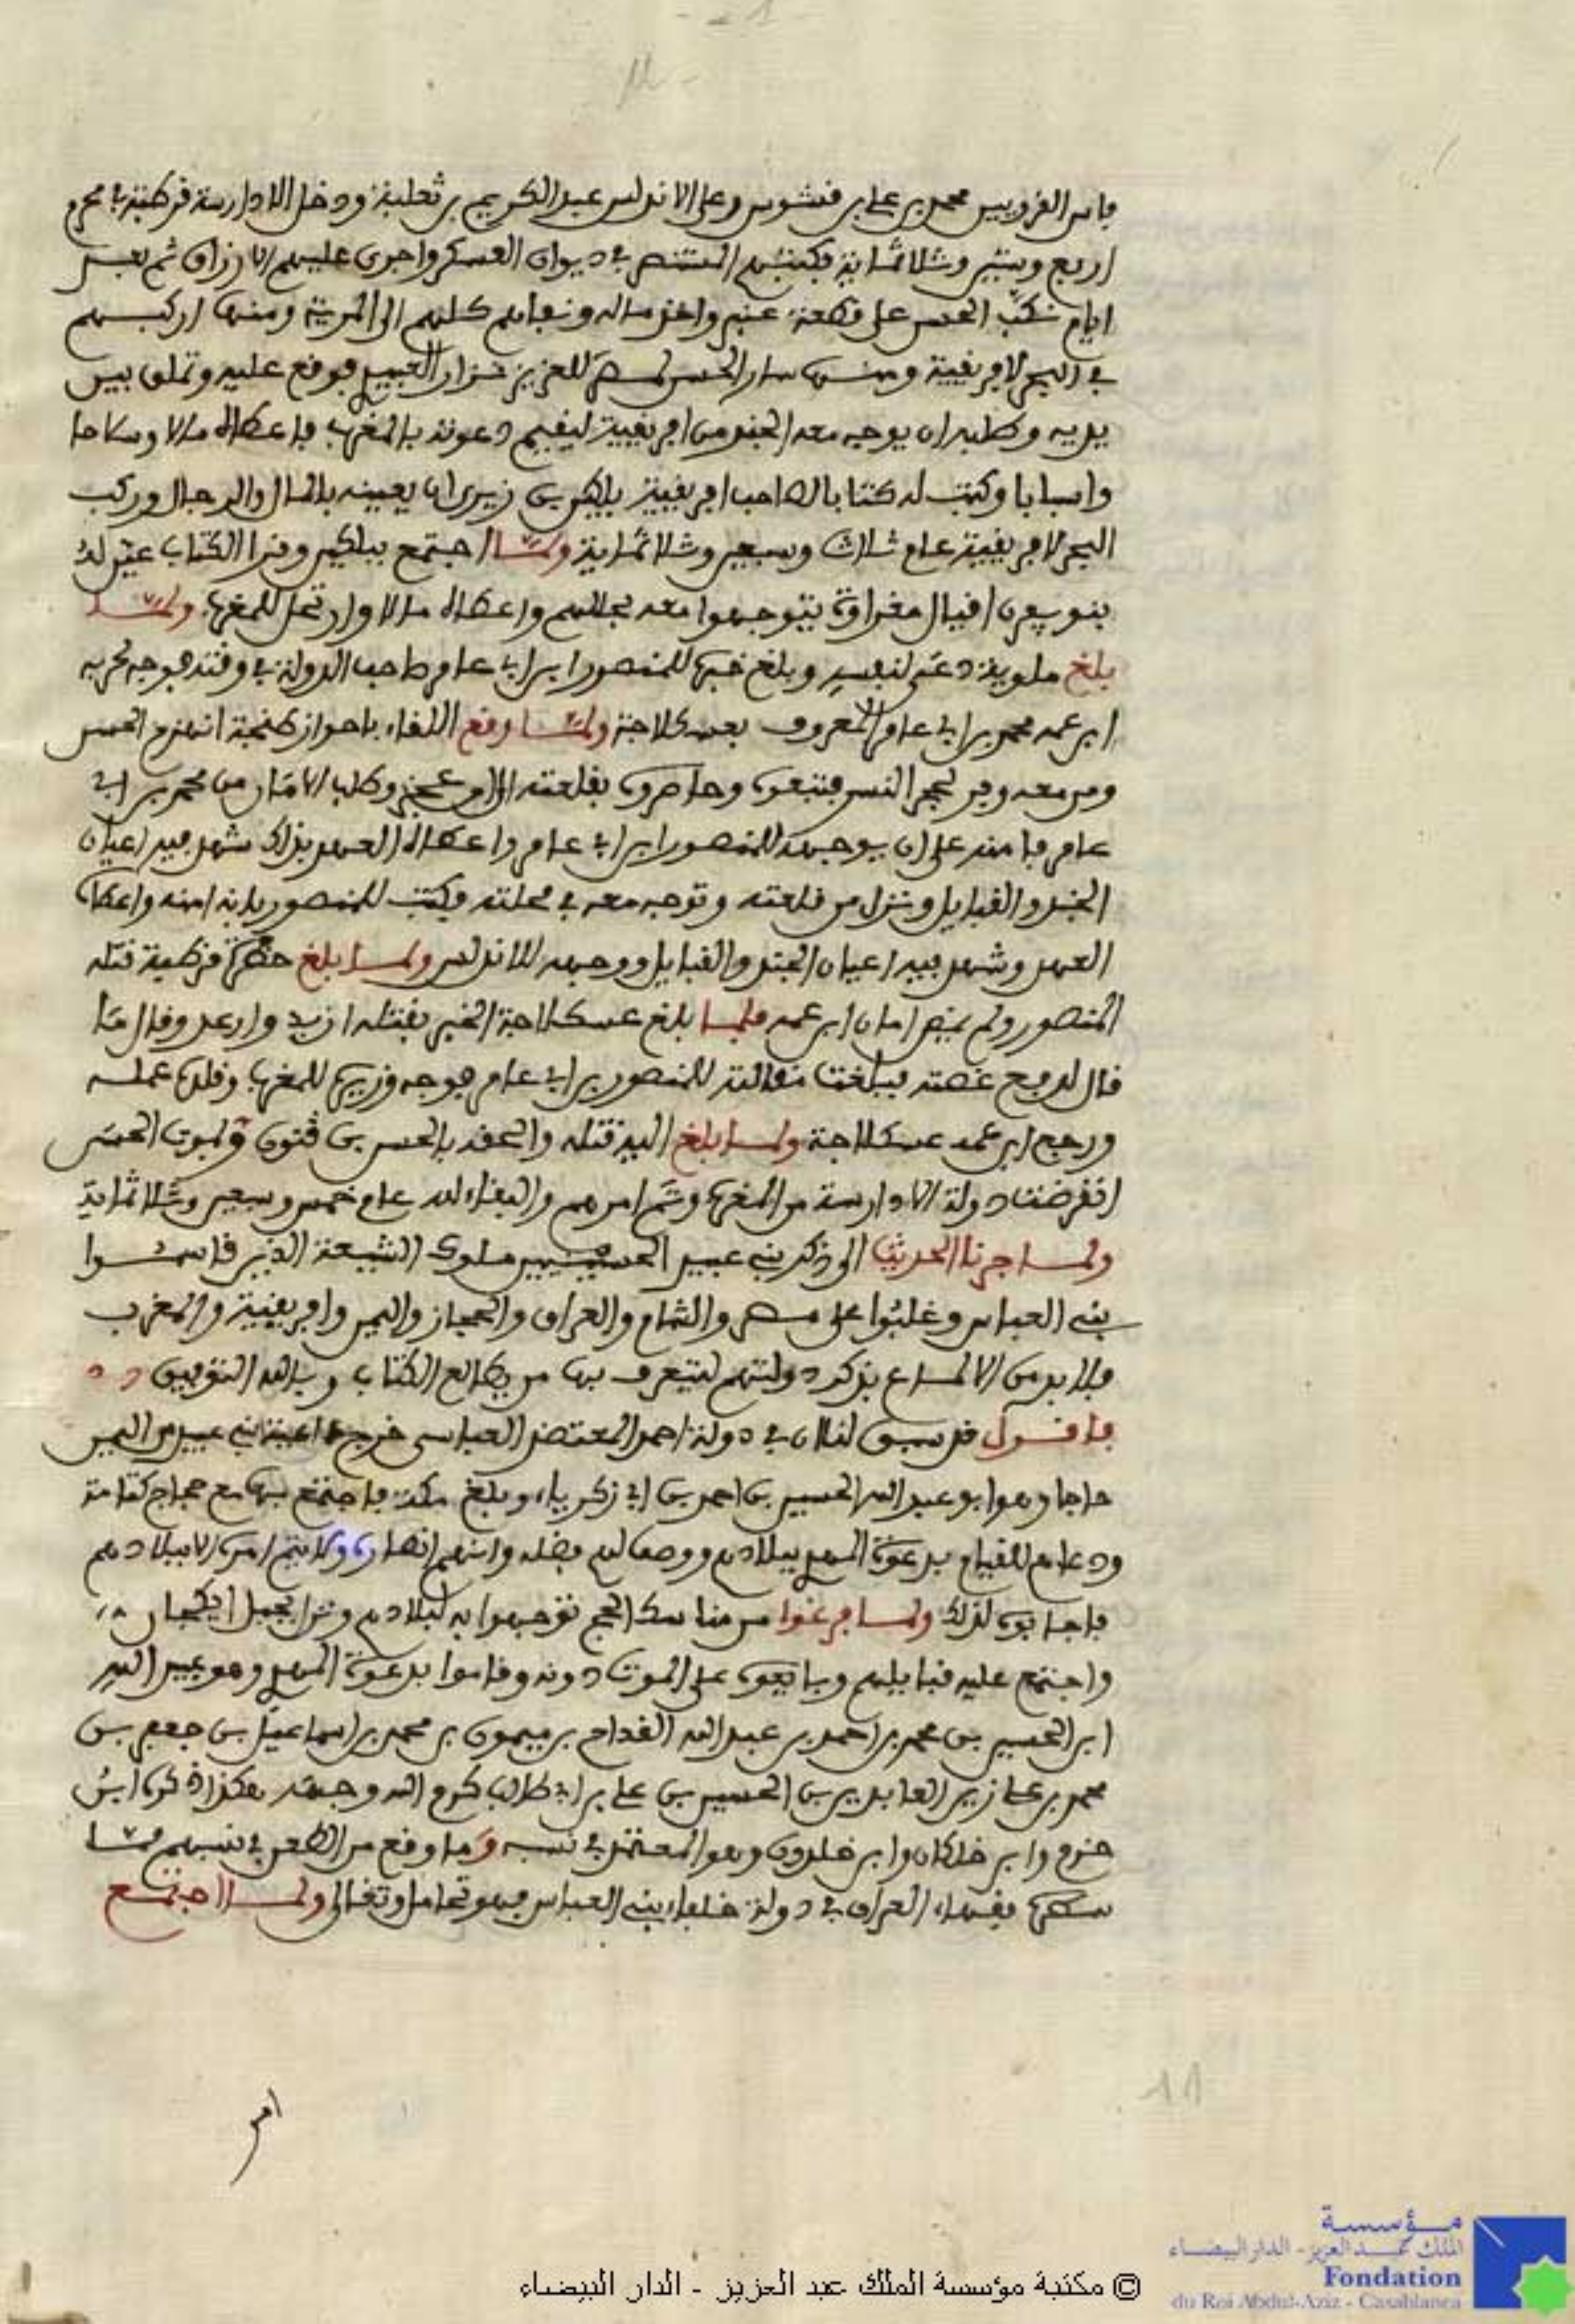 - 21 -
فاس القرويين محمد بن علي بن قشوش وعلى الاندلس عبد الكريم بن ثعلبة ودخل الادارسة قرطبة في محرم
اربع وستين وثلاثماية فكتبهم المستنصر في ديوان العسكر واجرى عليهم الارزاق ثم بعد
ايام نكب الحسن على قطعة عنبر واخذ ماله ونفاهم كلهم الى المرية ومنها اركبهم
في البحر لافريقية ومنها سار الحسن لمصر للعزيز نزار العبيدي فوقع عليه وتملق بين
يديه وطلبه ان يوجه معه الجند من افريقية ليقيم دعوته بالمغرب فاعطاه مالا وسلاحا
واسبابا وكتب له كتابا لصاحب افريقية بلكين بن زيري ان يعينه بالمال والرجال وركب
البحر لافريقية عام ثلاث وسبعين وثلاثماية ولما اجتمع ببلكين وقرا الكتاب عين له
بنو يفرن اقيال مغراوة يتوجهوا معه بحللهم واعطاه مالا وارتحل للمغرب ولما
بلغ ملوية دعى لنفسه وبلغ خبره للمنصور ابن ابي عامر صاحب الدولة في وقته فوجه لحربه
ابن عمه محمد بن ابي عامر المعروف بعسكلاجة ولما وقع اللقاء باحواز طنجة انهزم الحسن
ومن معه وفر لحجر النسر فتبعوه وحاصروه بقلعته الى ان عجز وطلب الامان من محمد بن ابي
عامر فامنه على ان يوجهه للمنصور ابن ابي عامر واعطاه العهد بذلك شهد فيه اعيان
الجند والقبايل ونزل من قلعته وتوجه معه في محلته فكتب للمنصور بانه امنه واعطاه
العهد وشهد فيه اعيان الجند والقبايل ووجهه للاندلس ولما بلغ حضرة قرطبة قتله
المنصور ولم يمض امان ابن عمه فلما بلغ عسكلاجة الخبر بقتله ازبد وارعد وقال ما
قال له وجع غصته فبلغت مقالته للمنصور بن ابي عامر فوجه وزيره للمغرب وقلده عمله
ورجع ابن عمه عسكلاجة ولما بلغ اليه قتله والحقه بالحسن بن قنون وبموت الحسن
انقرضت دولة الادارسة من المغرب وتم امرهم والبقاء لله عام خمس وسبعين وثلاثماية
ولما جرنا الحديث الى ذكر بني عبيد الحسينيين ملوك الشيعة الذين قاسموا
بني العباس وغلبوا على مصر والشام والعراق والحجاز واليمن وافريقية والمغرب
فلا بد من الالماع بذكر دولتهم ليتعرف بها من يطالع الكتاب وبالله التوفيق
فاقول قد سبق لنا ان في دولة احمد المعتضد العباسي خرج داعية بني عبيد من اليمن
حاجا وهو ابو عبد الله الحسين بن احمد بن ابي زكرياء وبلغ مكة فاجتمع بها مع حجاج كتامة
ودعاهم للقيام بدعوة المهدي ببلادهم ووصف لهم فضله وانهم انصاره ولا يتم امره الا ببلادهم
فاجابوه لذلك ولما فرغوا من مناسك الحج توجهوا به لبلادهم ونزل بجبل ايكجان
واجتمع عليه قبايلهم وبايعوه على الموت دونه وقاموا بدعوة المهدي وهو عبيد الله
ابن الحسين بن محمد بن احمد بن عبد الله القداح بن ميمون بن محمد بن اسماعيل بن جعفر بن
محمد بن علي زين العابدين بن الحسين بن علي بن ابي طالب كرم الله وجهه هكذا ذكره ابن
حزم وابن خلكان وابن خلدون وهو المعتمد في نسبه وما وقع من الطعن في نسبهم مما
سطره فقهاء العراق في دولة خلفاء بني العباس فهو تحامل وتغالى ولما اجتمع
11
© مكتبة مؤسسة الملك عبد العزيز - الدار البيضاء
مؤسسة
الملك عبد العزيز - الدار البيضاء
Fondation
du Roi Abdul-Aziz - Casablanca